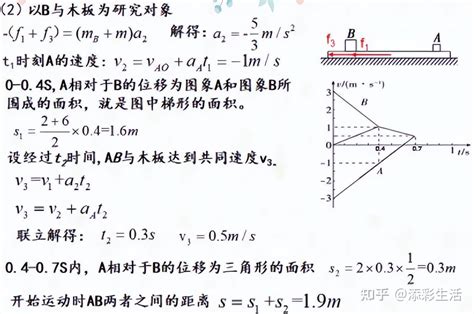 (2) 以B与木板为研究对象
-(f₁+f₃)=(m_B+m)a₂ 解得: a₂=-5/3 m/s²
t₁时刻A的速度: v₂=v_AO+a_A t₁=-1m/s
0-0.4S,A相对于B的位移为图象A和图象B所
围成的面积，就是图中梯形的面积。
s₁=(2+6)/2×0.4=1.6m
设经过t₂时间,AB与木板达到共同速度v₃。
v₃=v₁+a₂t₂
v₃=v₂+a_A t₂
联立解得: t₂=0.3s v₃=0.5m/s
0.4-0.7S内，A相对于B的位移为三角形的面积 s₂=2×0.3×1/2=0.3m
开始运动时AB两者之间的距离 s=s₁+s₂=1.9m
B
A
f₃
f₁
v/(m·s⁻¹)
3
2
1
0
-1
-2
-3
B
A
0.4
0.7
1
t/s
知乎 @添彩生活